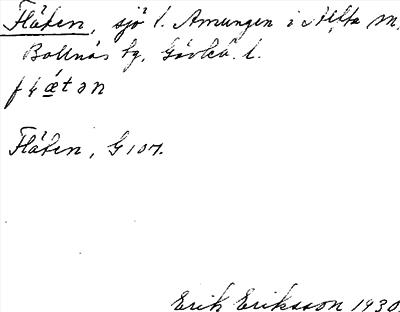 Flåten, sjö l. Amungen i Alfta sn,
Bollnäs tg, Gävleb. l.
Flåten, G 107.
Erik Eriksson 1930.